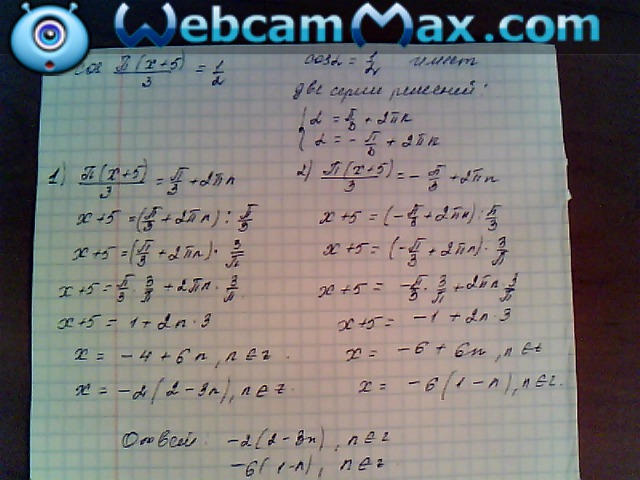 WebcamMax.com
cos П(x+5)/3 = 1/2
cos α = 1/2 имеет
две серии решений:
α = π/3 + 2πn
α = - π/3 + 2πn
1) П(x+5)/3 = π/3 + 2πn
x+5 = (π/3 + 2πn) : π/3
x+5 = (π/3 + 2πn) · 3/π
x+5 = π/3 · 3/π + 2πn · 3/π
x+5 = 1 + 2n · 3
x = -4 + 6n, n∈z.
x = -2(2-3n), n∈z.
2) П(x+5)/3 = - π/3 + 2πn
x+5 = (- π/3 + 2πn) : π/3
x+5 = (- π/3 + 2πn) · 3/π
x+5 = - π/3 · 3/π + 2πn 3/π
x+5 = -1 + 2n · 3
x = -6 + 6n, n∈z
x = -6(1-n), n∈z.
Ответ: -2(2-3n), n∈z
-6(1-n), n∈z.